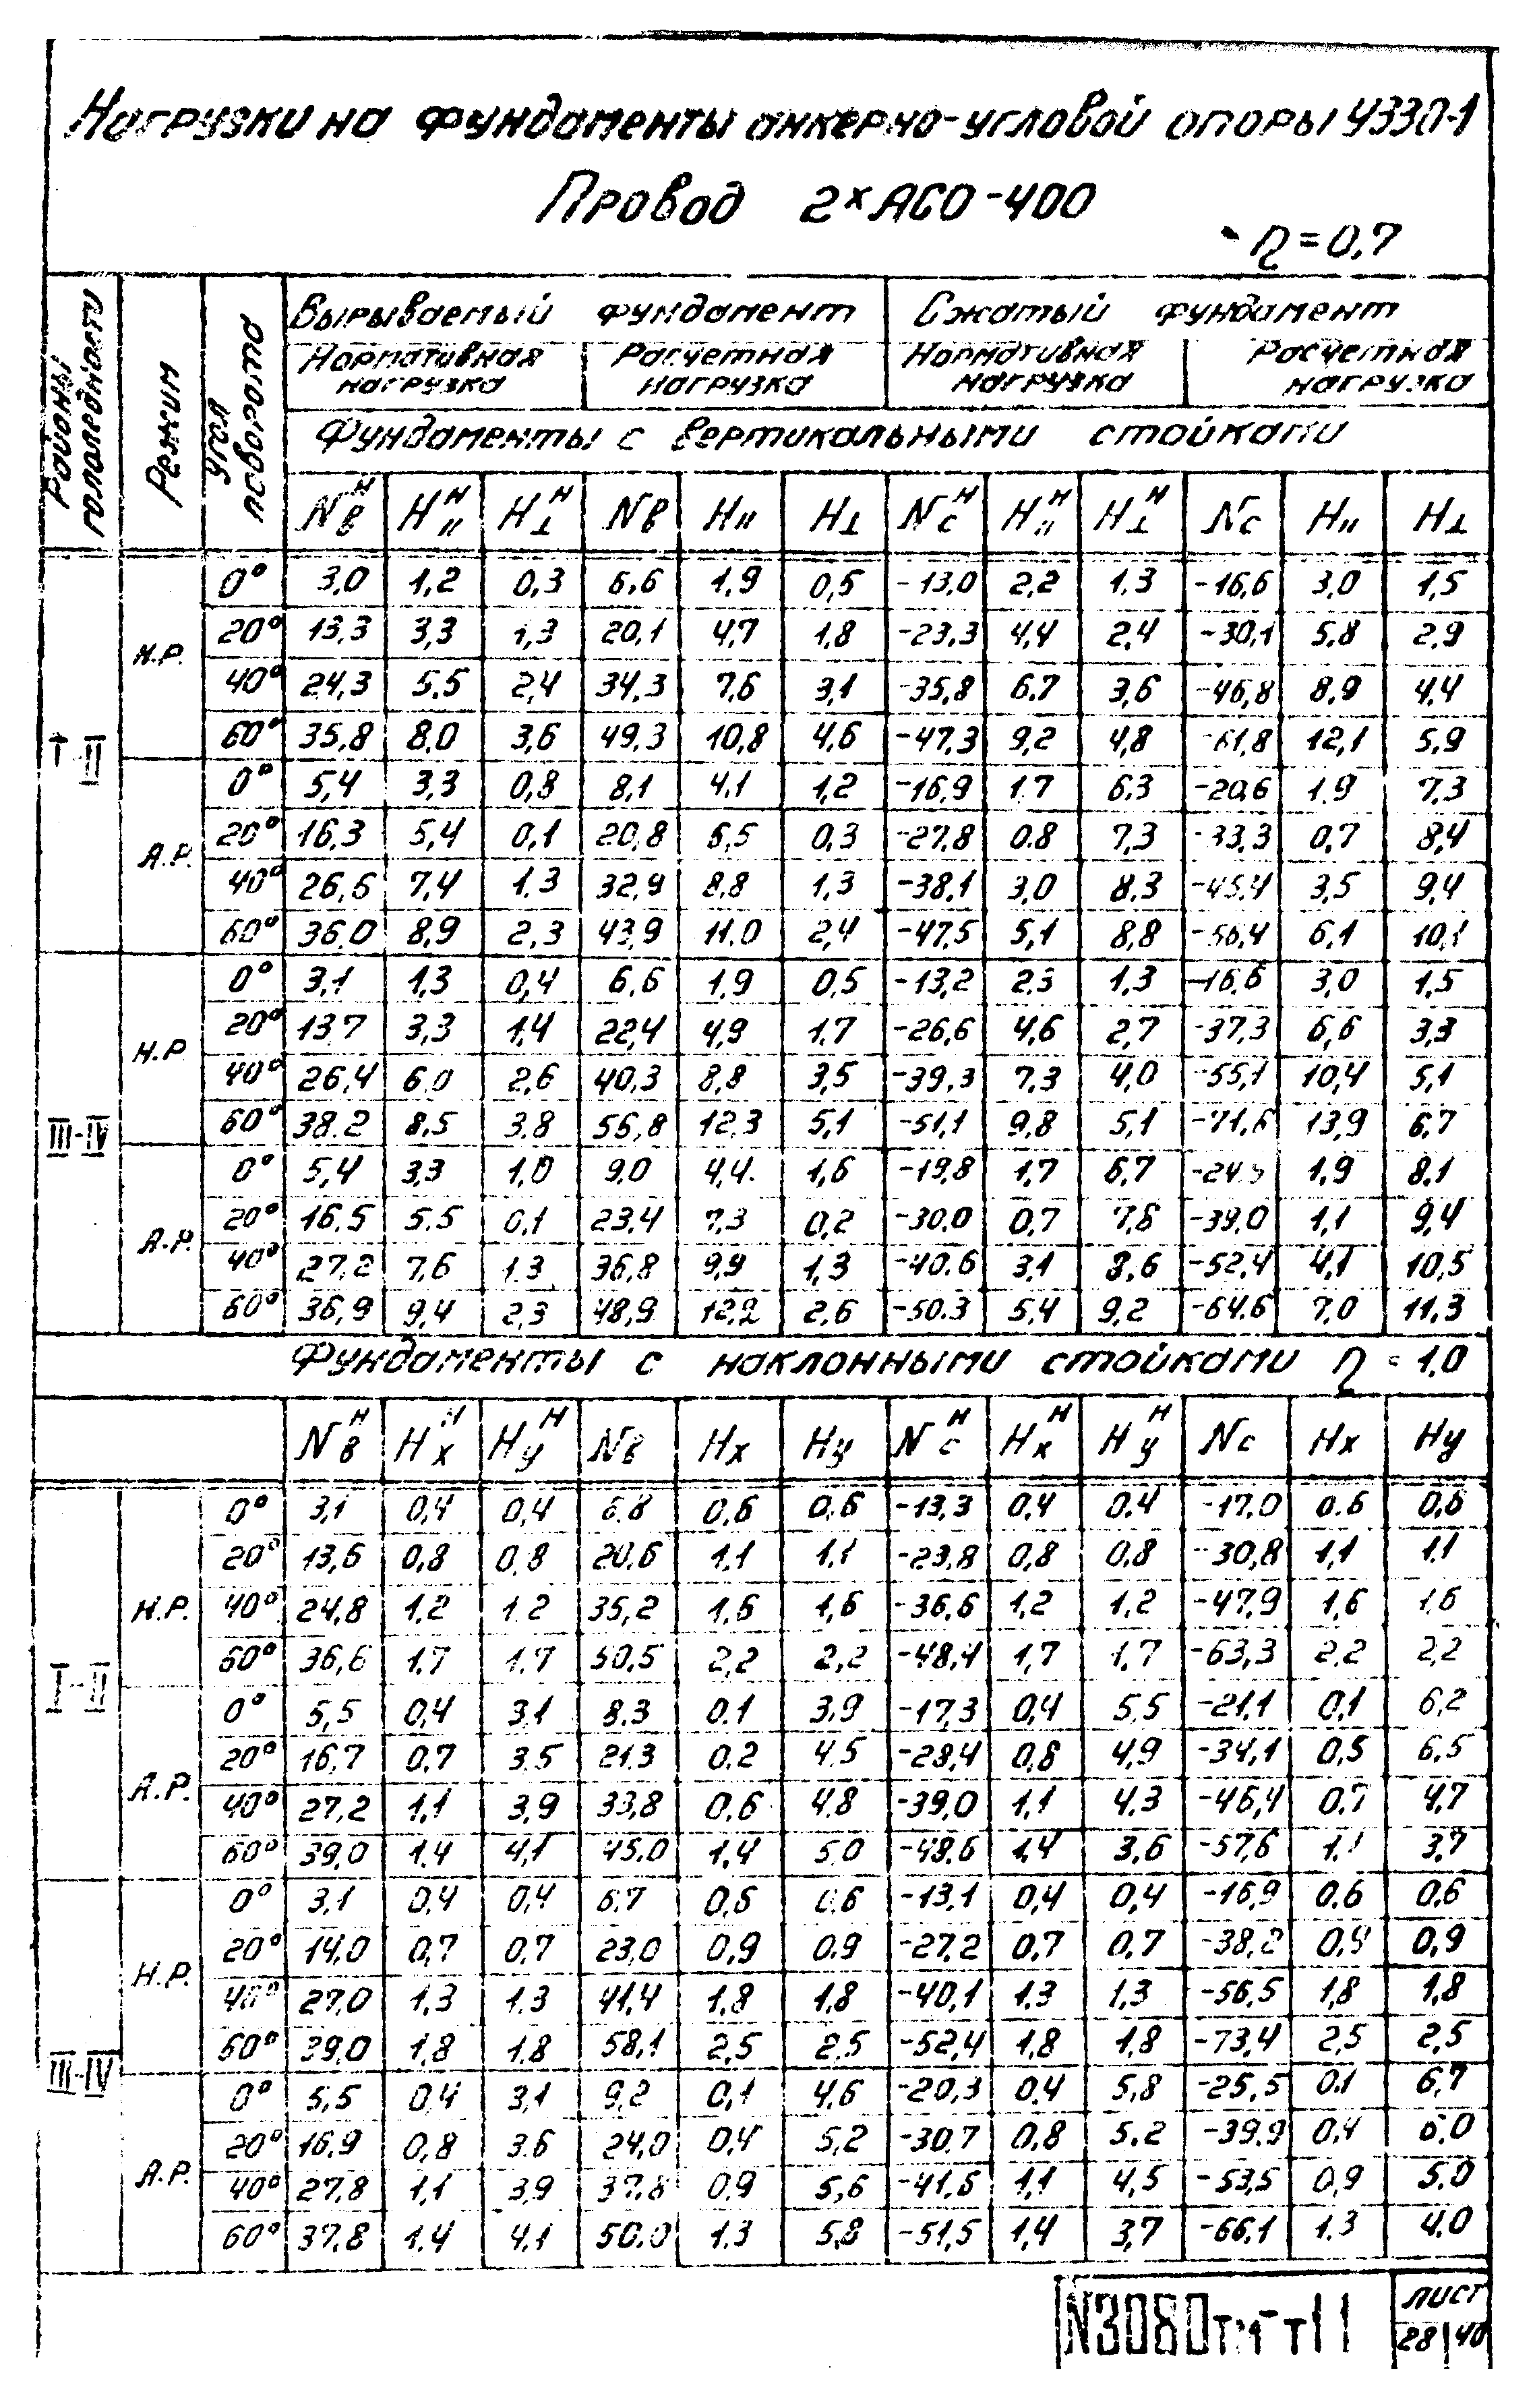 Нагрузки на фундаменты анкерно-угловой опоры У330-1
Провод 2×АСО-400
η=0,7
Районы гололедности
Режим
Угол поворота
Вырываемый фундамент Сжатый фундамент
Нормативная нагрузка Расчетная нагрузка Нормативная нагрузка Расчетная нагрузка
Фундаменты с вертикальными стойками
Nвᴴ H॥ᴴ H⊥ᴴ Nв H॥ H⊥ Ncᴴ H॥ᴴ H⊥ᴴ Nc H॥ H⊥
I-II
Н.Р.
0° 3,0 1,2 0,3 6,6 1,9 0,5 -13,0 2,2 1,3 -16,6 3,0 1,5
20° 13,3 3,3 1,3 20,1 4,7 1,8 -23,3 4,4 2,4 -30,1 5,8 2,9
40° 24,3 5,5 2,4 34,3 7,6 3,1 -35,8 6,7 3,6 -46,8 8,9 4,4
60° 35,8 8,0 3,6 49,3 10,8 4,6 -47,3 9,2 4,8 -61,8 12,1 5,9
А.Р.
0° 5,4 3,3 0,8 8,1 4,1 1,2 -16,9 1,7 6,3 -20,6 1,9 7,3
20° 16,3 5,4 0,1 20,8 6,5 0,3 -27,8 0,8 7,3 -33,3 0,7 8,4
40° 26,6 7,4 1,3 32,9 8,8 1,3 -38,1 3,0 8,3 -45,4 3,5 9,4
60° 36,0 8,9 2,3 43,9 11,0 2,4 -47,5 5,1 8,8 -56,4 6,1 10,1
III-IV
Н.Р.
0° 3,1 1,3 0,4 6,6 1,9 0,5 -13,2 2,3 1,3 -16,6 3,0 1,5
20° 13,7 3,3 1,4 22,4 4,9 1,7 -26,6 4,6 2,7 -37,3 6,6 3,3
40° 26,4 6,0 2,6 40,3 8,8 3,5 -39,3 7,3 4,0 -55,1 10,4 5,1
60° 38,2 8,5 3,8 56,8 12,3 5,1 -51,1 9,8 5,1 -71,6 13,9 6,7
А.Р.
0° 5,4 3,3 1,0 9,0 4,4 1,6 -19,8 1,7 6,7 1,9 8,1
20° 16,5 5,5 0,1 23,4 7,3 0,2 -30,0 0,7 7,6 -39,0 1,1 9,4
40° 27,2 7,6 1,3 36,8 9,9 1,3 -40,6 3,1 8,6 -52,4 4,1 10,5
60° 36,9 9,4 2,3 48,9 12,2 2,6 -50,3 5,4 9,2 -64,6 7,0 11,3
Фундаменты с наклонными стойками η = 1,0
Nвᴴ Hxᴴ Hyᴴ Nв Hx Hy Ncᴴ Hxᴴ Hyᴴ Nc Hx Hy
I-II
Н.Р.
0° 3,1 0,4 0,4 6,8 0,6 0,6 -13,3 0,4 0,4 -17,0 0,6 0,6
20° 13,6 0,8 0,8 20,6 1,1 1,1 -23,8 0,8 0,8 -30,8 1,1 1,1
40° 24,8 1,2 1,2 35,2 1,6 1,6 -36,6 1,2 1,2 -47,9 1,6 1,6
60° 36,6 1,7 1,7 50,5 2,2 2,2 -48,4 1,7 1,7 -63,3 2,2 2,2
А.Р.
0° 5,5 0,4 3,1 8,3 0,1 3,9 -17,3 0,4 5,5 -21,1 0,1 6,2
20° 16,7 0,7 3,5 21,3 0,2 4,5 -28,4 0,8 4,9 -34,1 0,5 6,5
40° 27,2 1,1 3,9 33,8 0,6 4,8 -39,0 1,1 4,3 -46,4 0,7 4,7
60° 39,0 1,4 4,1 45,0 1,4 5,0 -48,6 1,4 3,6 -57,6 3,7
III-IV
Н.Р.
0° 3,1 0,4 0,4 6,7 0,6 0,6 -13,1 0,4 0,4 -16,9 0,6 0,6
20° 14,0 0,7 0,7 23,0 0,9 0,9 -27,2 0,7 0,7 -38,2 0,9 0,9
40° 27,0 1,3 1,3 41,4 1,8 1,8 -40,1 1,3 1,3 -56,5 1,8 1,8
60° 39,0 1,8 1,8 58,1 2,5 2,5 -52,4 1,8 1,8 -73,4 2,5 2,5
А.Р.
0° 5,5 0,4 3,1 9,2 0,1 4,6 -20,3 0,4 5,8 -25,5 0,1 6,7
20° 16,9 0,8 3,6 24,0 0,4 5,2 -30,7 0,8 5,2 -39,9 0,4 6,0
40° 27,8 1,1 3,9 37,8 0,9 5,6 -41,5 1,1 4,5 -53,5 0,9 5,0
60° 37,8 1,4 4,1 50,0 1,3 5,8 -51,5 1,4 3,7 -66,1 1,3 4,0
N3080тм-т11
лист
28 40